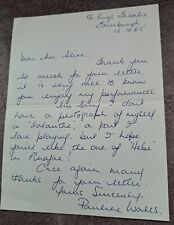 c/o Kings Theatre
Edinburgh
12.10.65
Dear Mrs
Thank you
so much for your letter
it is very nice to know
you enjoy my performances.
I don't
have a photograph of myself
in "Iolanthe", a part I
love playing, but I hope
you'll like the one of "Hebe"
in Pinafore!
Once again, many
thanks for your letter.
Yours Sincerely,
Pauline Wales.